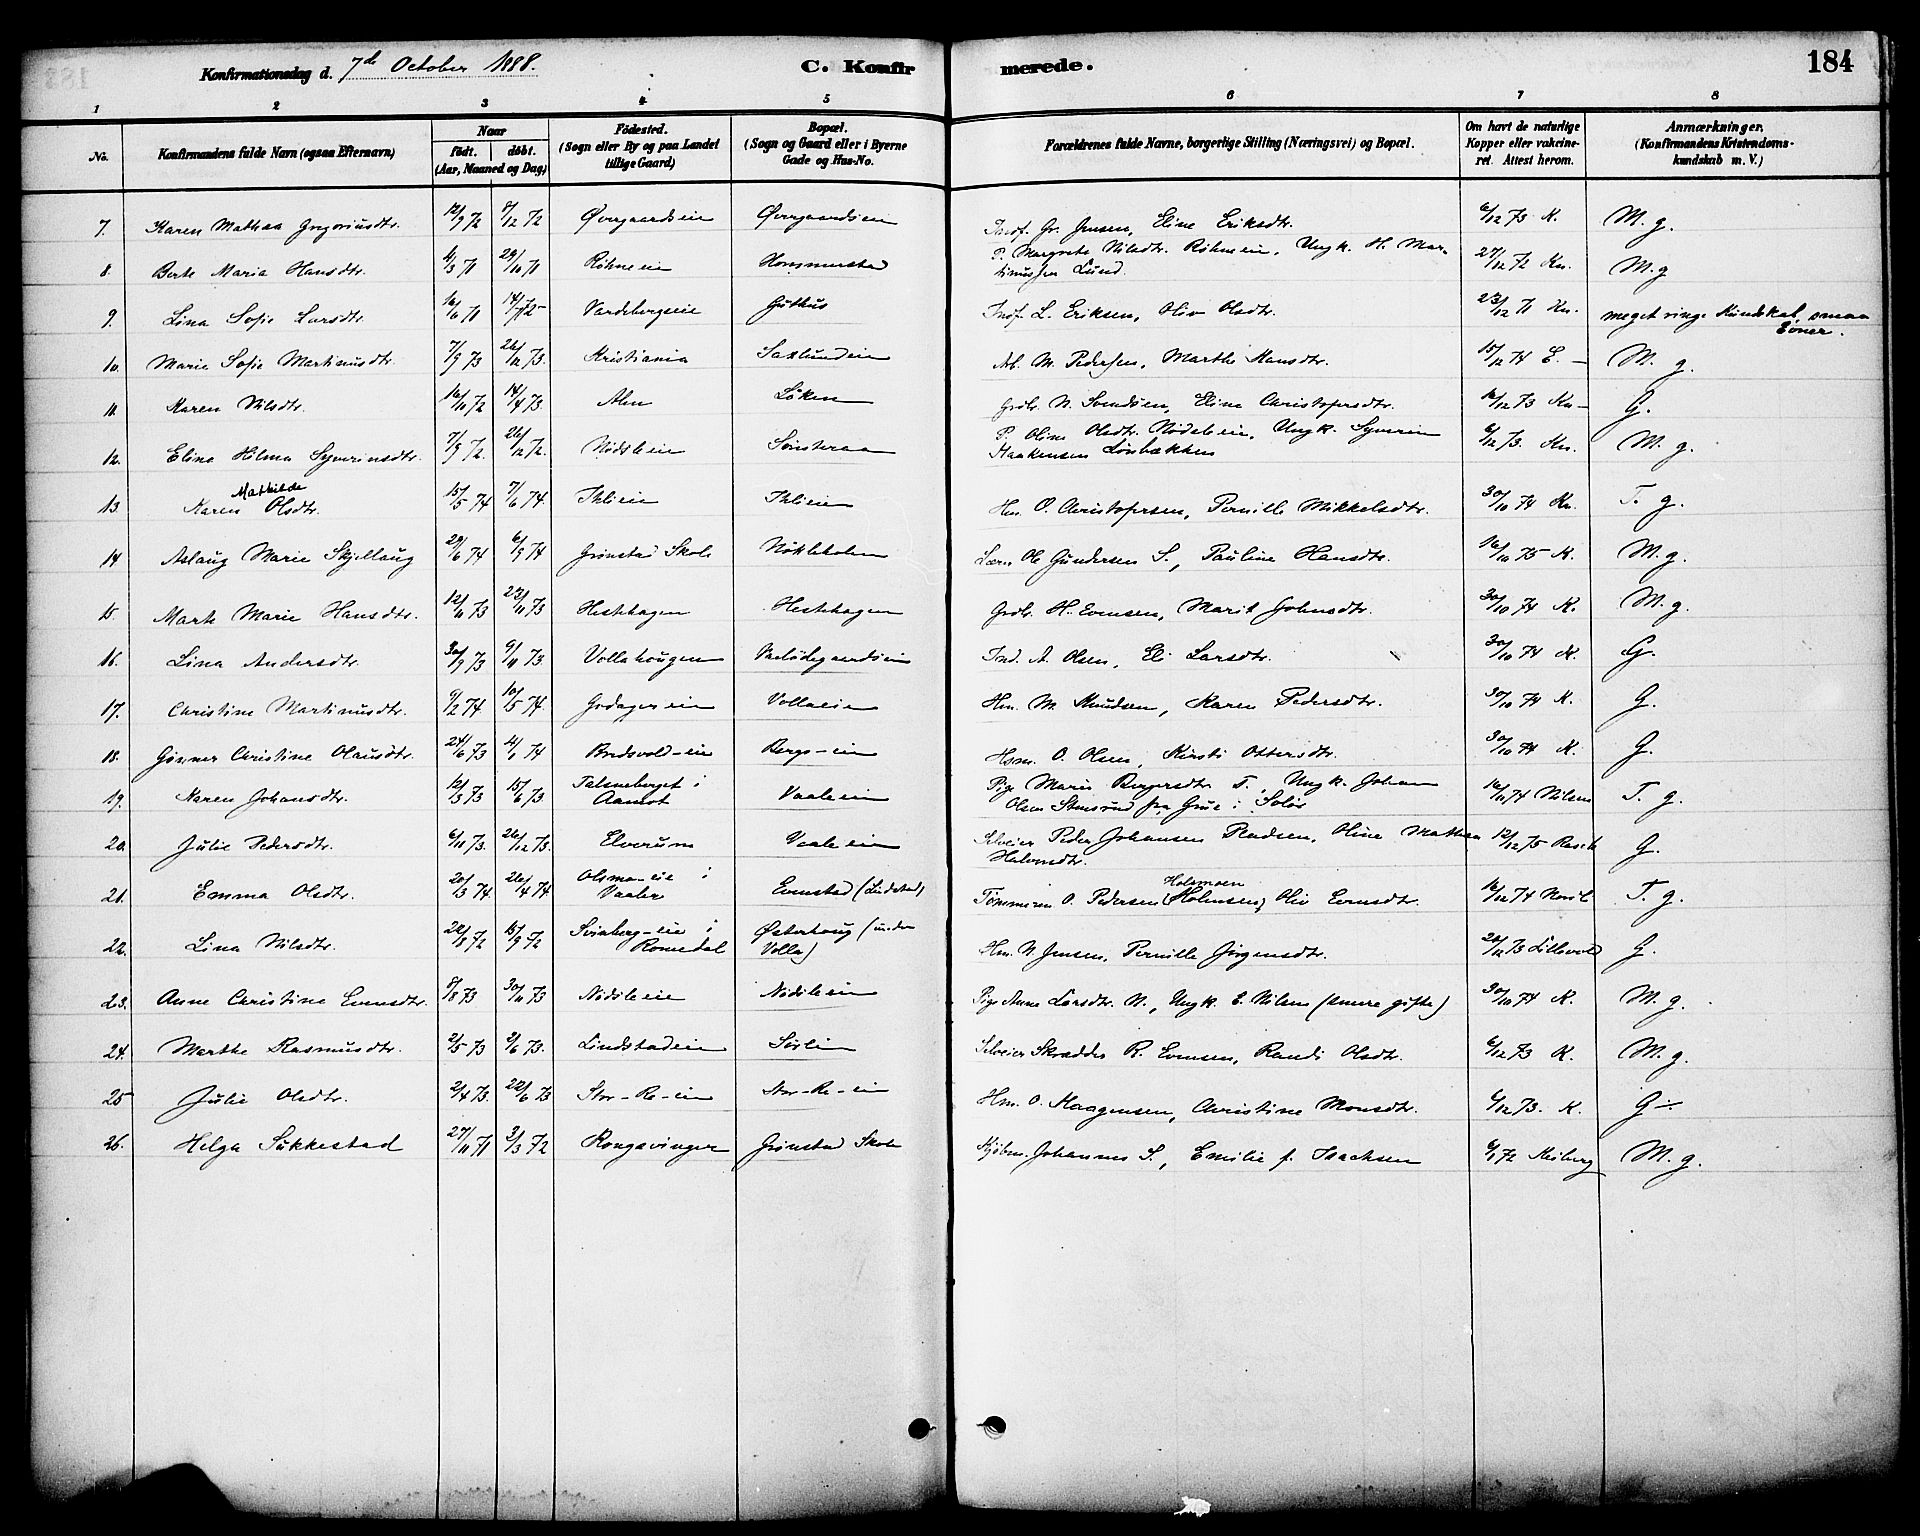 Konfirmationsdag d. 7de October 1888. C. Konfirmerede. 184
1 2 3 4 5 6 7 8
No. Konfirmandens fulde Navn (ogsaa Efternavn) Naar født. døbt. (Aar, Maaned og Dag) Fødested. (Sogn eller By og paa Landet tillige Gaard) Bopæl. (Sogn og Gaard eller i Byerne Gade og Hus-No. Forældrenes fulde Navne, borgerlige Stilling (Næringsvei) og Bopæl. Om havt de naturlige Kopper eller vakcineret. Attest herom. Anmærkninger. (Konfirmandens Kristendomskundskab m. V.)
7. Karen Mathea Gregoriusdtr. 12/9 72 8/12 72 Øvergaardseie Øvergaardseie Indf. Gr. Jensen, Eline Eriksdtr. 6/12 73 K. M. g.
8. Berte Maria Hansdtr. 4/3 71 29/10 71 Røhneeie Hommerstad P. Margrete Nilsdtr. Røhneeie, Ungk. H. Mar-
tinussen Lund. 27/12 72 Kn. M. g
9. Lina Sofie Larsdtr. 16/6 71 14/1 72 Vardebergseie Guthus Indf. L. Eriksen, Oliv Olsdtr. 23/12 71 Kn. meget ringe Kundskab, smaa
Evner.
10. Marie Sofie Martinusdtr. 7/9 73 26/12 73. Kristiania Saxlundeie Arb. M. Pedersen, Marthe Hansdtr. 15/12 74 E. M. g.
11. Karen Nilsdtr. 16/10 72 14/4 73. Alm Løken Grdbr. N. Svendsen, Eline Christofersdtr. 16/12 73 Kn G.
12. Eline Hilma Syverinsdtr. 7/9 72. 26/12 72. Nødsleeie Sønsteraa P. Oline Olsdtr. Nødsleeie, Ungk. Syverin
Haakensen Lønbækken 6/12 73. Kn. M. g.
Mathilde
13. Karen Olsdtr. 15/5 74 7/6 74. Ihleeie Ihleeie Hm. O. Christofersen, Pernille Mikkelsdtr. 30/10 74 Kn. T. g.
14 Aslaug Marie Skjellaug 29/6 74 6/9 74 Grønstad Skole Nøkleholm Lærer Ole Gundersen S., Pauline Hansdtr. 16/10 75 K. M. g.
15. Marte Marie Hansdtr. 12/11 73 23/11 73. Hestehagen Hestehagen Grdbr. H. Evensen, Marit Johnsdtr. 30/10 74 K. M. g.
16. Lina Andersdtr. 30/9 73 9/11 73. Vollahougen Ind. A. Olsen, Eli Larsdtr. 30/10 74 K. G.
17. Christine Martinusdtr. 9/2 74 10/5 74. Godagereie Vollaeie Hm. M. Knudsen, Karen Pedersdtr. 30/10 74 K. G.
18. Gunner Christine Olausdtr. 24/6 73 11/1 74 Bredsvold-eie Bergs-eie Hsm. O. Olsen, Kirsti Ottersdtr. 30/10 74 K. G.
19. Karen Johansdtr. 12/3 73 15/6 73. Talsneberget i
Aamot Vaaleeie Pige Marie Bergersdtr. T., Ungk. Johan
Olsen Stensrud fra Grue i Solør 16/11 74 Nilsen T. g.
20. Julie Pedersdtr. 6/11 73. 26/12 73. Elverum Vaaleeie Selveier Peder Johansen Pladsen, Oline Mathea
Halvorsdtr. 12/12 75 Rasch G.
21. Emma Olsdtr. 20/3 74. 26/4 74 Olsmo-eie i
Vaaler Evenstad (Lidstad) Tømmerm O. Pedersen (Holmsen) Oliv Evensdtr.
Holsmoen 16/12 74 T. g.
22. Lina Nilsdtr. 22/8 72 15/9 72 Svinberg-eie i
Romedal Østerhaug (under
Volla) Hm. N. Jensen, Pernille Jørgensdtr. 20/12 73 Lillevold G.
23. Anne Christine Evensdtr. 8/8 73 30/11 73 Nødsleeie Nødsleeie Pige Anne Larsdtr. N., Ungk. E. Nilsen (senere gifte) 30/10 74 K. M. g.
24. Marthe Rasmusdtr. 2/5 73 2/6 73. Lindstadeie Sørlie Selveier Skrædder R. Evensen, Randi Olsdtr. 6/12 73 K. M. g.
25 Julie Olsdtr. 2/4 73. 22/6 73 Stor-Re-eie Stor-Re-eie Hm. O. Haagensen, Christine Monsdtr. 6/12 73. K. G
26. Helga Sukkestad 27/11 71 3/3 72 Kongsvinger Grønstad Skole Kjøbm. Johannes S., Emilie f. Isachsen 6/1 72 M. g.